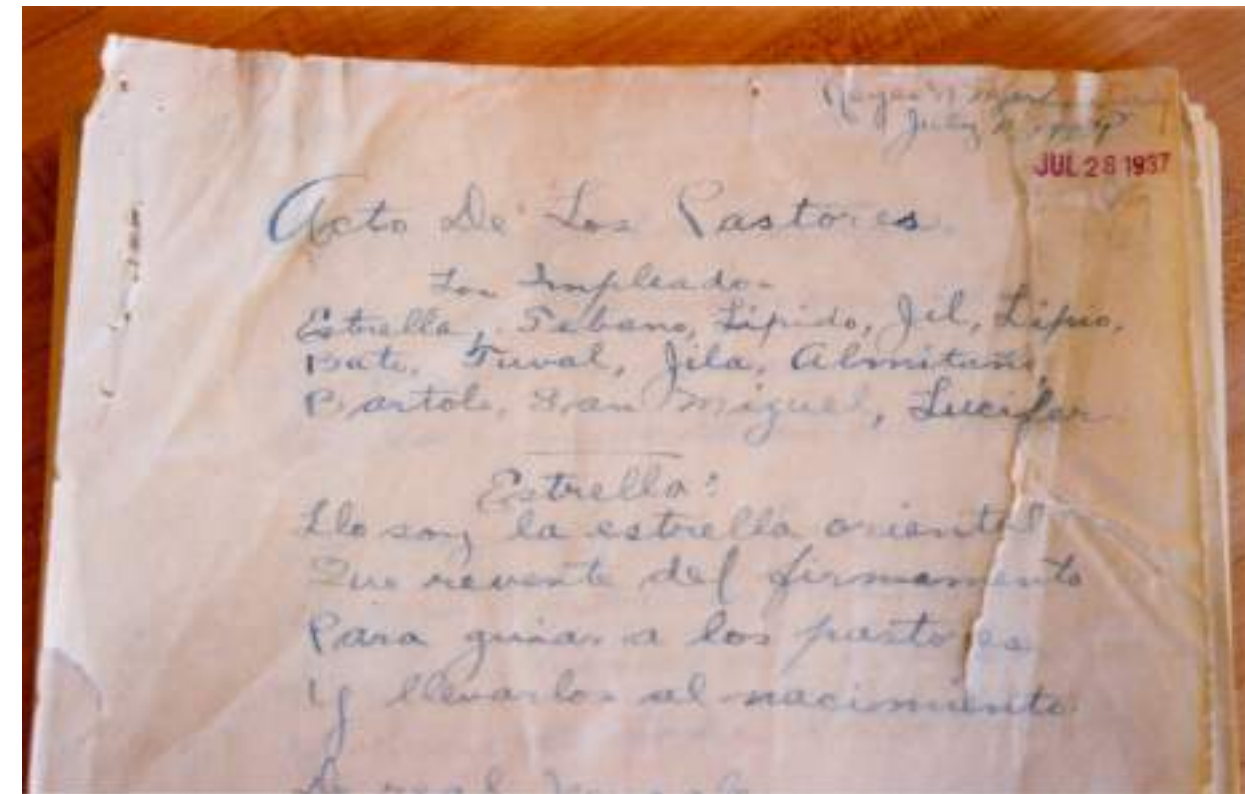 Reyes N.
July
JUL 28 1937
Acto De Los Pastores
Los Impleados
Estrella, Tebano, Lipido, Jil, Lipio,
Bato, Tuval, Jila, Almitaño,
Bartolo, San Miguel, Lucifer
Estrella:
Llo soy la estrella oriental
Que revente del firmamento
Para guiar a los pastores
Y llevarlos al nacimiento
De real